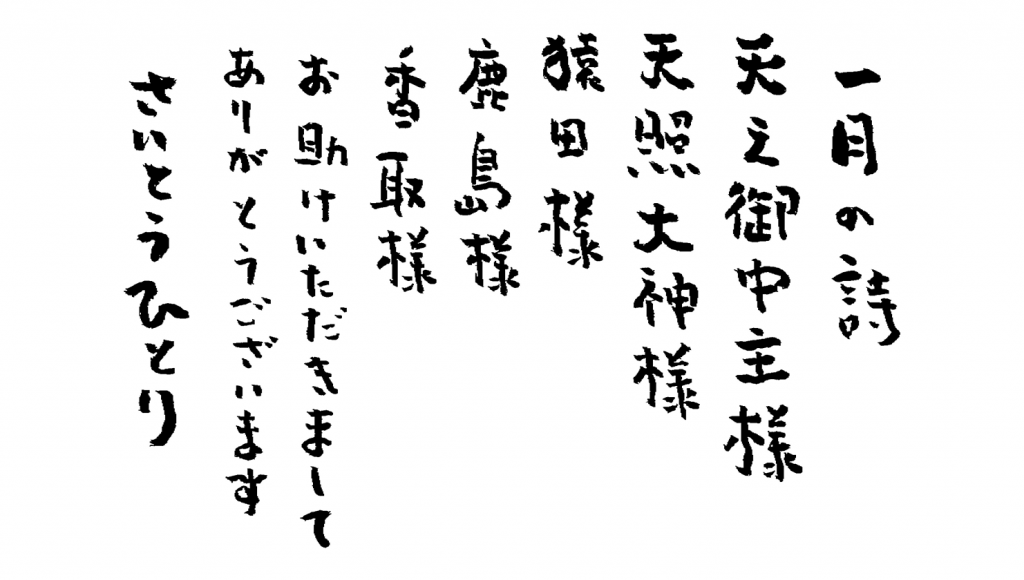 一目の詩
天之御中主様
天照大神様
猿田様
鹿島様
香取様
お助けいただきまして
ありがとうございます
さいとうひとり